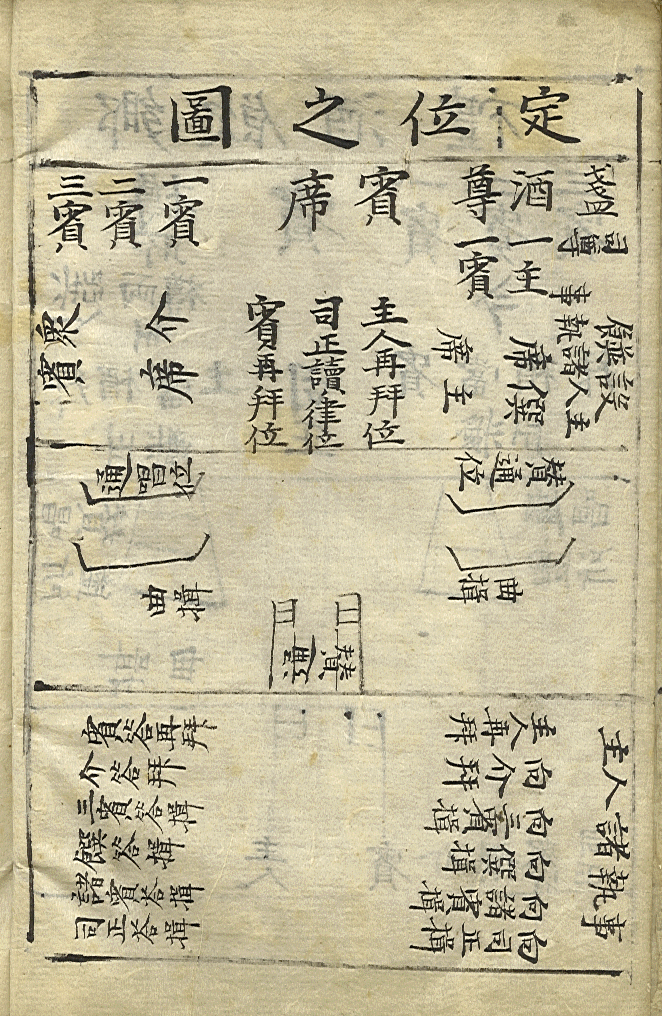 定位之圖
司尊
酒尊
一主
一賓
賓席
一賓
二賓
三賓
設
主人諸執事
僎席
主席
主人再拜位
司正讀律位
賓再拜位
介席
眾賓
贊通位
通唱位
曲揖
曲揖
贊
主人諸執事
主人再拜
向介拜
向三賓揖
向僎揖
向諸賓揖
向司正揖
賓答再拜
介答拜
三賓答揖
僎答揖
諸賓答揖
司正答揖